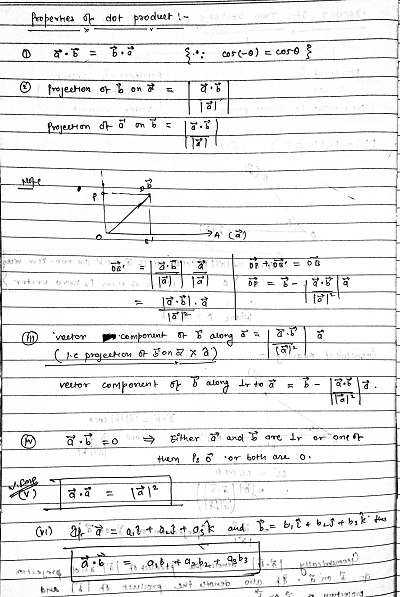 Properties of dot product :-
① a⃗·b⃗ = b⃗·a⃗ {∵ cos(-θ) = cosθ}
② Projection of b⃗ on a⃗ = |a⃗·b⃗ / |a⃗||
Projection of a⃗ on b⃗ = |a⃗·b⃗ / |a⃗||
Note
P
B⃗
O
B'
A (a⃗)
OB' = |a⃗·b⃗ / |a⃗|| a⃗ / |a⃗|
OP + OB' = OB
= |a⃗·b⃗|·a⃗ / |a⃗|²
OP = b⃗ - |a⃗·b⃗ / |a⃗|²| a⃗
(iii) vector component of b⃗ along a⃗ = |a⃗·b⃗ / |a⃗|²| a⃗
(i.e projection of b⃗ on a⃗ × â)
vector component of b⃗ along ⊥r to a⃗ = b⃗ - |a⃗·b⃗ / |a⃗|²| a⃗.
(iv) a⃗·b⃗ = 0 ⇒ Either a⃗ and b⃗ are ⊥r or one of
them is 0⃗ or both are 0.
v.Imp
(v) a⃗·a⃗ = |a⃗|²
(vi) If a⃗ = a₁î + a₂ĵ + a₃k̂ and b⃗ = b₁î + b₂ĵ + b₃k̂ the
a⃗·b⃗ = a₁b₁ + a₂b₂ + a₃b₃